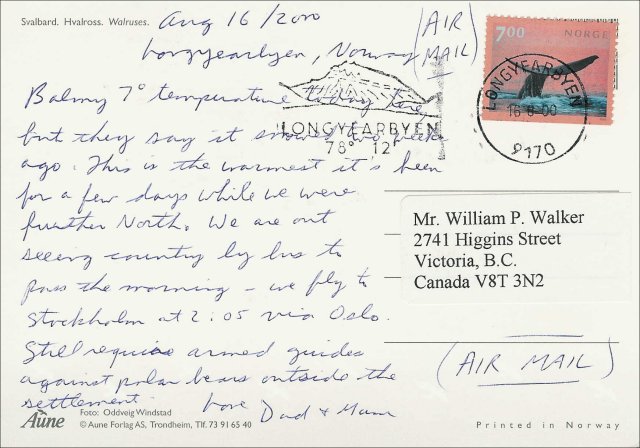 Svalbard. Hvalross. Walruses.
Aug 16/2000
Longyearbyen, Norway
(AIR MAIL)
7.00 NORGE
LONGYEARBYEN
16-8-00
9170
LONGYEARBYEN
78° 12'
Balmy 7° temperature today here
but they say it snowed a week
ago. This is the warmest it's been
for a few days while we were
further North. We are out
seeing country by bus to
pass the morning - we fly to
Stockholm at 2:05 via Oslo.
Still require armed guides
against polar bears outside the
settlement. Love Dad & Mum
Mr. William P. Walker
2741 Higgins Street
Victoria, B.C.
Canada V8T 3N2
(AIR MAIL)
Aune
Foto: Oddveig Windstad
© Aune Forlag AS, Trondheim, Tlf. 73 91 65 40
Printed in Norway